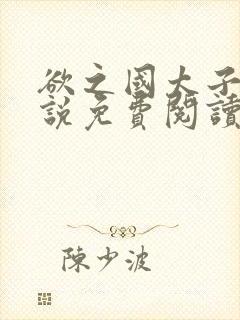 欲之國大子
說免費閱讀
陳少波